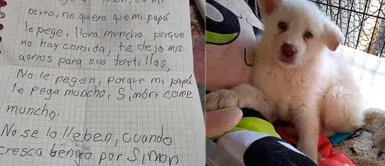 perro, no quiero que mi papá
le pege, llora muncho, porque
no hay comida, te dejo mis
aorros para sus tortillas,
No le pegen, porque mi papá
le pega muncho, Simón come
muncho.
No se lo lleben, cuando
cresca bengo por Simon